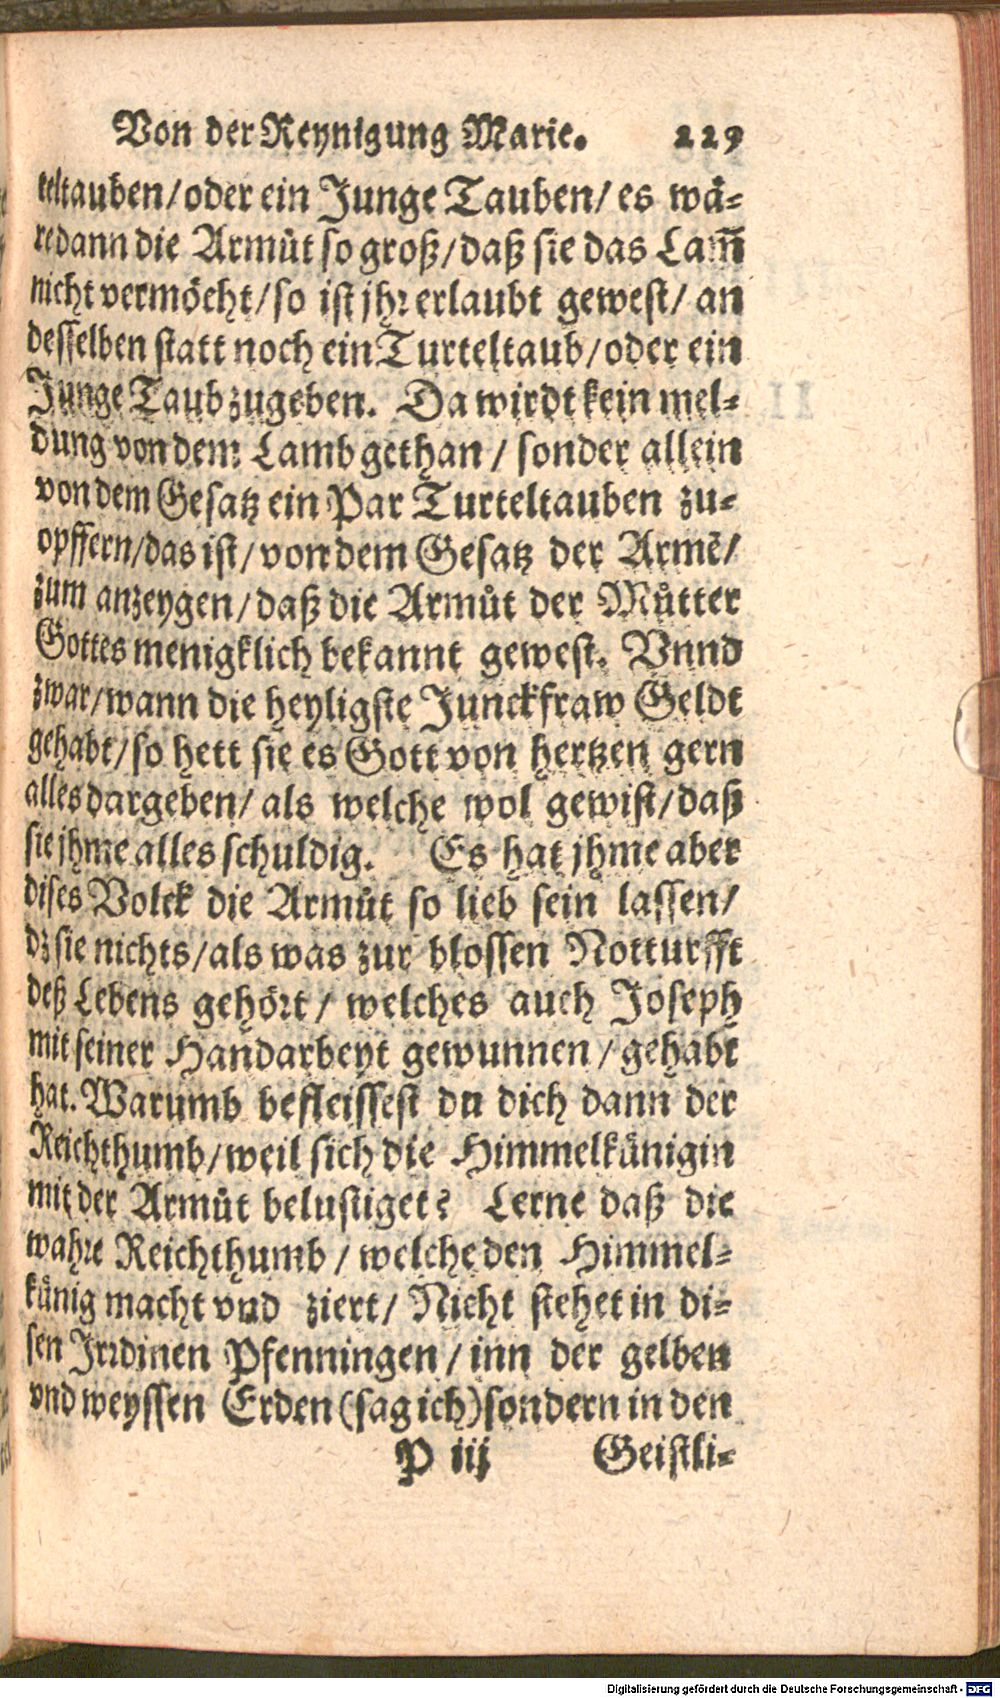 Von der Reynigung Marie. 229
teltauben/oder ein Junge Tauben/ es wä-
re dann die Armůt so groß/daß sie das Lam̃
nicht vermöcht/so ist jhr erlaubt gewest/ an
desselben statt noch ein Turteltaub/oder ein
Junge Taub zugeben. Da wirdt kein mel-
dung von dem Lamb gethan / sonder allein
von dem Gesatz ein Par Turteltauben zu-
opffern/das ist/ von dem Gesatz der Armē/
zum anzeygen/daß die Armůt der Můtter
Gottes menigklich bekannt gewest. Vnnd
zwar/wann die heyligste Junckfraw Geldt
gehabt/so hett sie es Gott von hertzen gern
alles dargeben/ als welche wol gewist/daß
sie jhme alles schuldig. Es hat jhme aber
dises Volck die Armůt so lieb sein lassen/
dz sie nichts/als was zur blossen Notturfft
deß Lebens gehört/ welches auch Joseph
mit seiner Handarbeyt gewunnen/gehabt
hat. Warumb befleissest du dich dann der
Reichthumb/weil sich die Himmelkünigin
mit der Armůt belustiget? Lerne daß die
wahre Reichthumb / welche den Himmel-
künig macht vnd ziert/ Nicht stehet in di-
sen Irrdinen Pfenningen/inn der gelben
vnd weyssen Erden (sag ich) sondern in den
P iij Geistli-
Digitalisierung gefördert durch die Deutsche Forschungsgemeinschaft - DFG